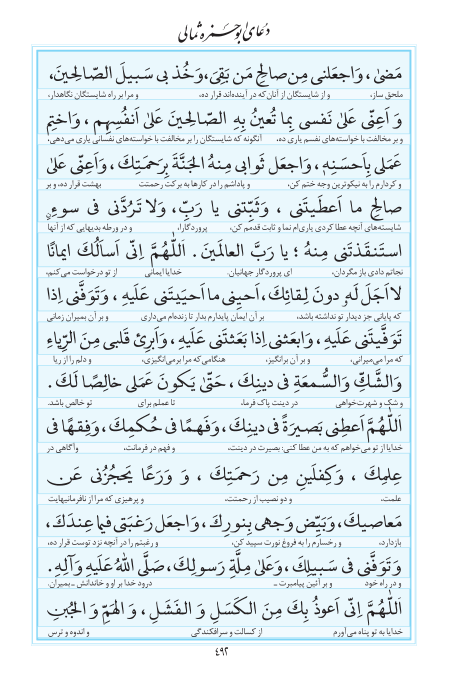 دُعای ابوحمزه ثمالی
مَضىٰ ، وَاجعَلنی مِن صالِحِ مَن بَقِیَ،وَخُذ بی سَبیلَ الصّالِحینَ،
ملحق ساز، و از شایستگان از آنان که در آینده‌اند قرار ده، و مرا بر راه شایستگان نگاهدار،
وَ اَعِنّی عَلىٰ نَفسی بِما تُعینُ بِهِ الصّالِحینَ عَلىٰ اَنفُسِهِم ، وَاختِم
و بر مخالفت با خواسته‌های نفسم یاری ده، آنگونه که شایستگان را بر مخالفت با خواسته‌های نفسانی یاری می‌دهی،
عَمَلی بِاَحسَنِهِ، وَاجعَل ثَوابی مِنهُ الجَنَّةَ بِرَحمَتِكَ، وَاَعِنّی عَلىٰ
و کردارم را به نیکوترین وجه ختم کن، و پاداشم را در کارها به برکت رحمتت بهشت قرار ده، و بر
صالِحِ ما اَعطَیتَنی ، وَثَبِّتنی یا رَبِّ، وَلا تَرُدَّنی فی سوءٍ
شایسته‌های آنچه عطا کردی یاری‌ام نما و ثابت قدمم کن، پروردگارا، و در ورطه بدیهایی که از آنها
استَنقَذتَنی مِنهُ ؛ یا رَبَّ العالَمینَ . اَللّٰهُمَّ اِنّی اَسأَلُكَ ایمانًا
نجاتم دادی باز مگردان، ای پروردگار جهانیان. خدایا ایمانی از تو درخواست می‌کنم،
لا اَجَلَ لَهُ دونَ لِقائِكَ، اَحیِنی ما اَحیَیتَنی عَلَیهِ ، وَتَوَفَّنی اِذا
که پایانی جز دیدار تو نداشته باشد، بر آن ایمان پایدارم بدار تا زنده‌ام می‌داری و بر آن بمیران زمانی
تَوَفَّیتَنی عَلَیهِ ، وَابعَثنی اِذا بَعَثتَنی عَلَیهِ، وَاَبرِئ قَلبی مِنَ الرِّیاءِ
که مرا می‌میرانی، و بر آن برانگیز، هنگامی که مرا برمی‌انگیزی، و دلم را از ریا
وَالشَّكِّ وَالسُّمعَةِ فی دینِكَ ، حَتّىٰ یَكونَ عَمَلی خالِصًا لَكَ .
و شک و شهرت‌خواهی در دینت پاک فرما، تا عملم برای تو خالص باشد.
اَللّٰهُمَّ اَعطِنی بَصیرَةً فی دینِكَ، وَفَهمًا فی حُكمِكَ، وَفِقهًا فی
خدایا از تو می‌خواهم که به من عطا کنی: بصیرت در دینت، و فهم در فرمانت، و آگاهی در
عِلمِكَ ، وَكِفلَینِ مِن رَحمَتِكَ ، وَ وَرَعًا یَحجُزُنی عَن
علمت، و دو نصیب از رحمتت، و پرهیزی که مرا از نافرمانیهایت
مَعاصیكَ، وَبَیِّض وَجهی بِنورِكَ، وَاجعَل رَغبَتی فیما عِندَكَ،
بازدارد، و رخسارم را به فروغ نورت سپید کن، و رغبتم را در آنچه نزد توست قرار ده،
وَ تَوَفَّنی فی سَبیلِكَ، وَعَلىٰ مِلَّةِ رَسولِكَ، صَلَّى اللهُ عَلَیهِ وَآلِهِ .
و در راه خود و بر آئین پیامبرت ـ درود خدا بر او و خاندانش ـ بمیران.
اَللّٰهُمَّ اِنّی اَعوذُ بِكَ مِنَ الكَسَلِ وَ الفَشَلِ ، وَ الهَمِّ وَ الجُبنِ
خدایا به تو پناه می‌آورم از کسالت و سرافکندگی و اندوه و ترس
٤٩٢